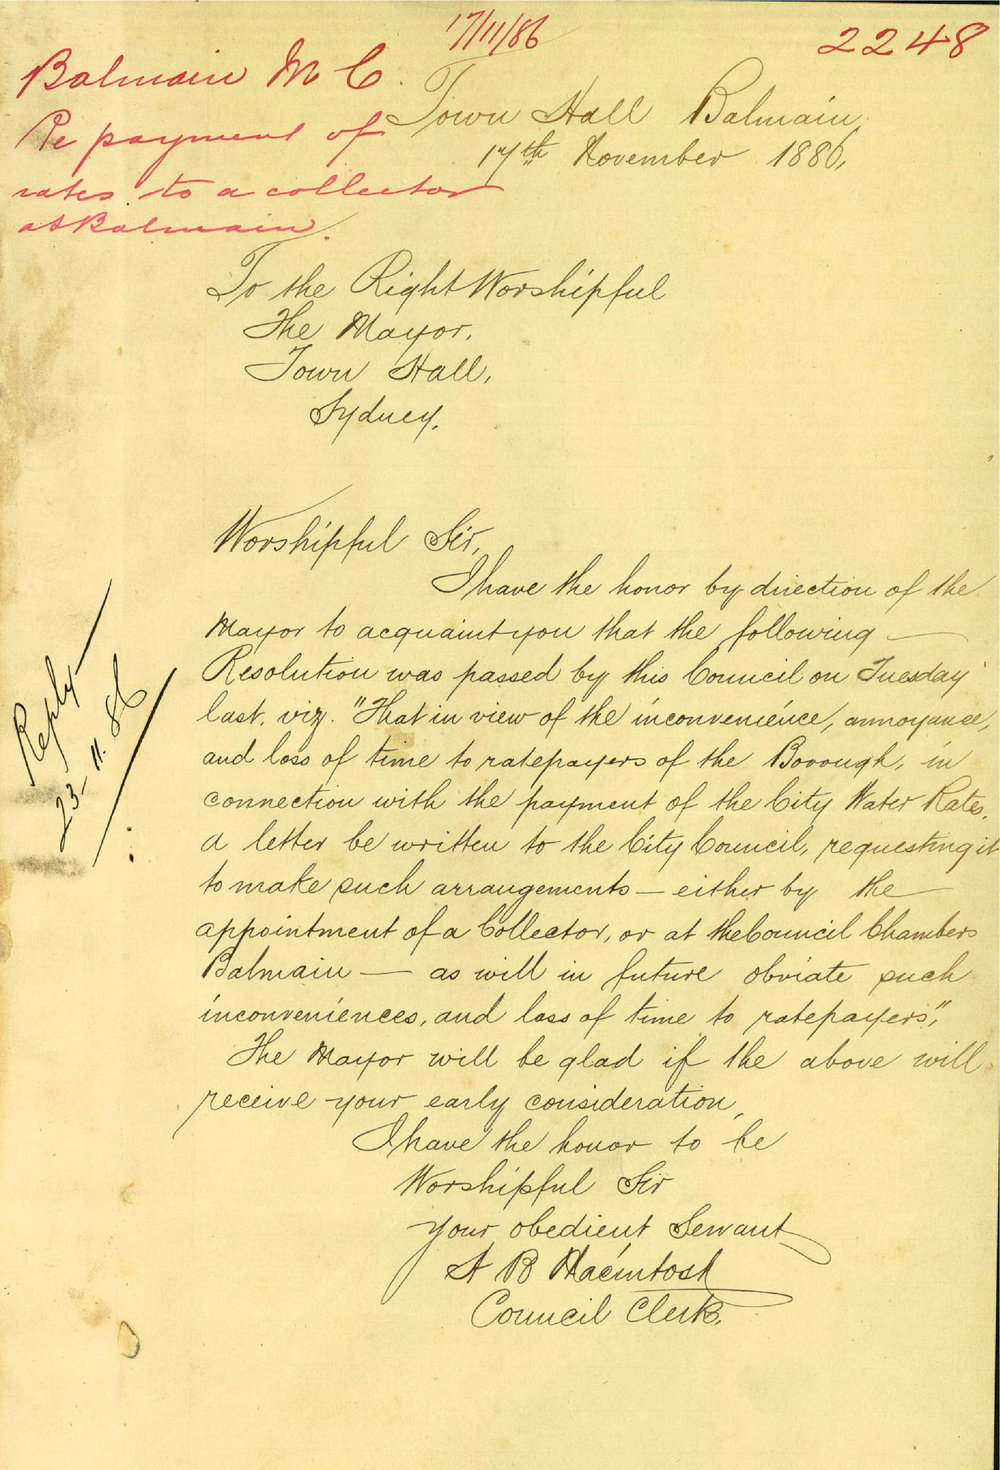 17/11/86
2248
Balmain M C.
Re payment of
rates to a collector
at Balmain.
Town Hall Balmain,
17th November 1886,
To the Right Worshipful
The Mayor,
Town Hall,
Sydney.
Worshipful Sir,
I have the honor by direction of the
Mayor to acquaint you that the following —
Resolution was passed by this Council on Tuesday
last, viz. "That in view of the inconvenience, annoyance,
and loss of time to ratepayers of the Borough, in
connection with the payment of the City Water Rates,
a letter be written to the City Council, requesting it
to make such arrangements — either by the
appointment of a Collector, or at the Council Chambers
Balmain — as will in future obviate such
inconveniences, and loss of time to ratepayers",
The Mayor will be glad if the above will
receive your early consideration,
I have the honor to be
Worshipful Sir
your obedient Servant
B Macintosh
Council Clerk.
Reply
23-11.86